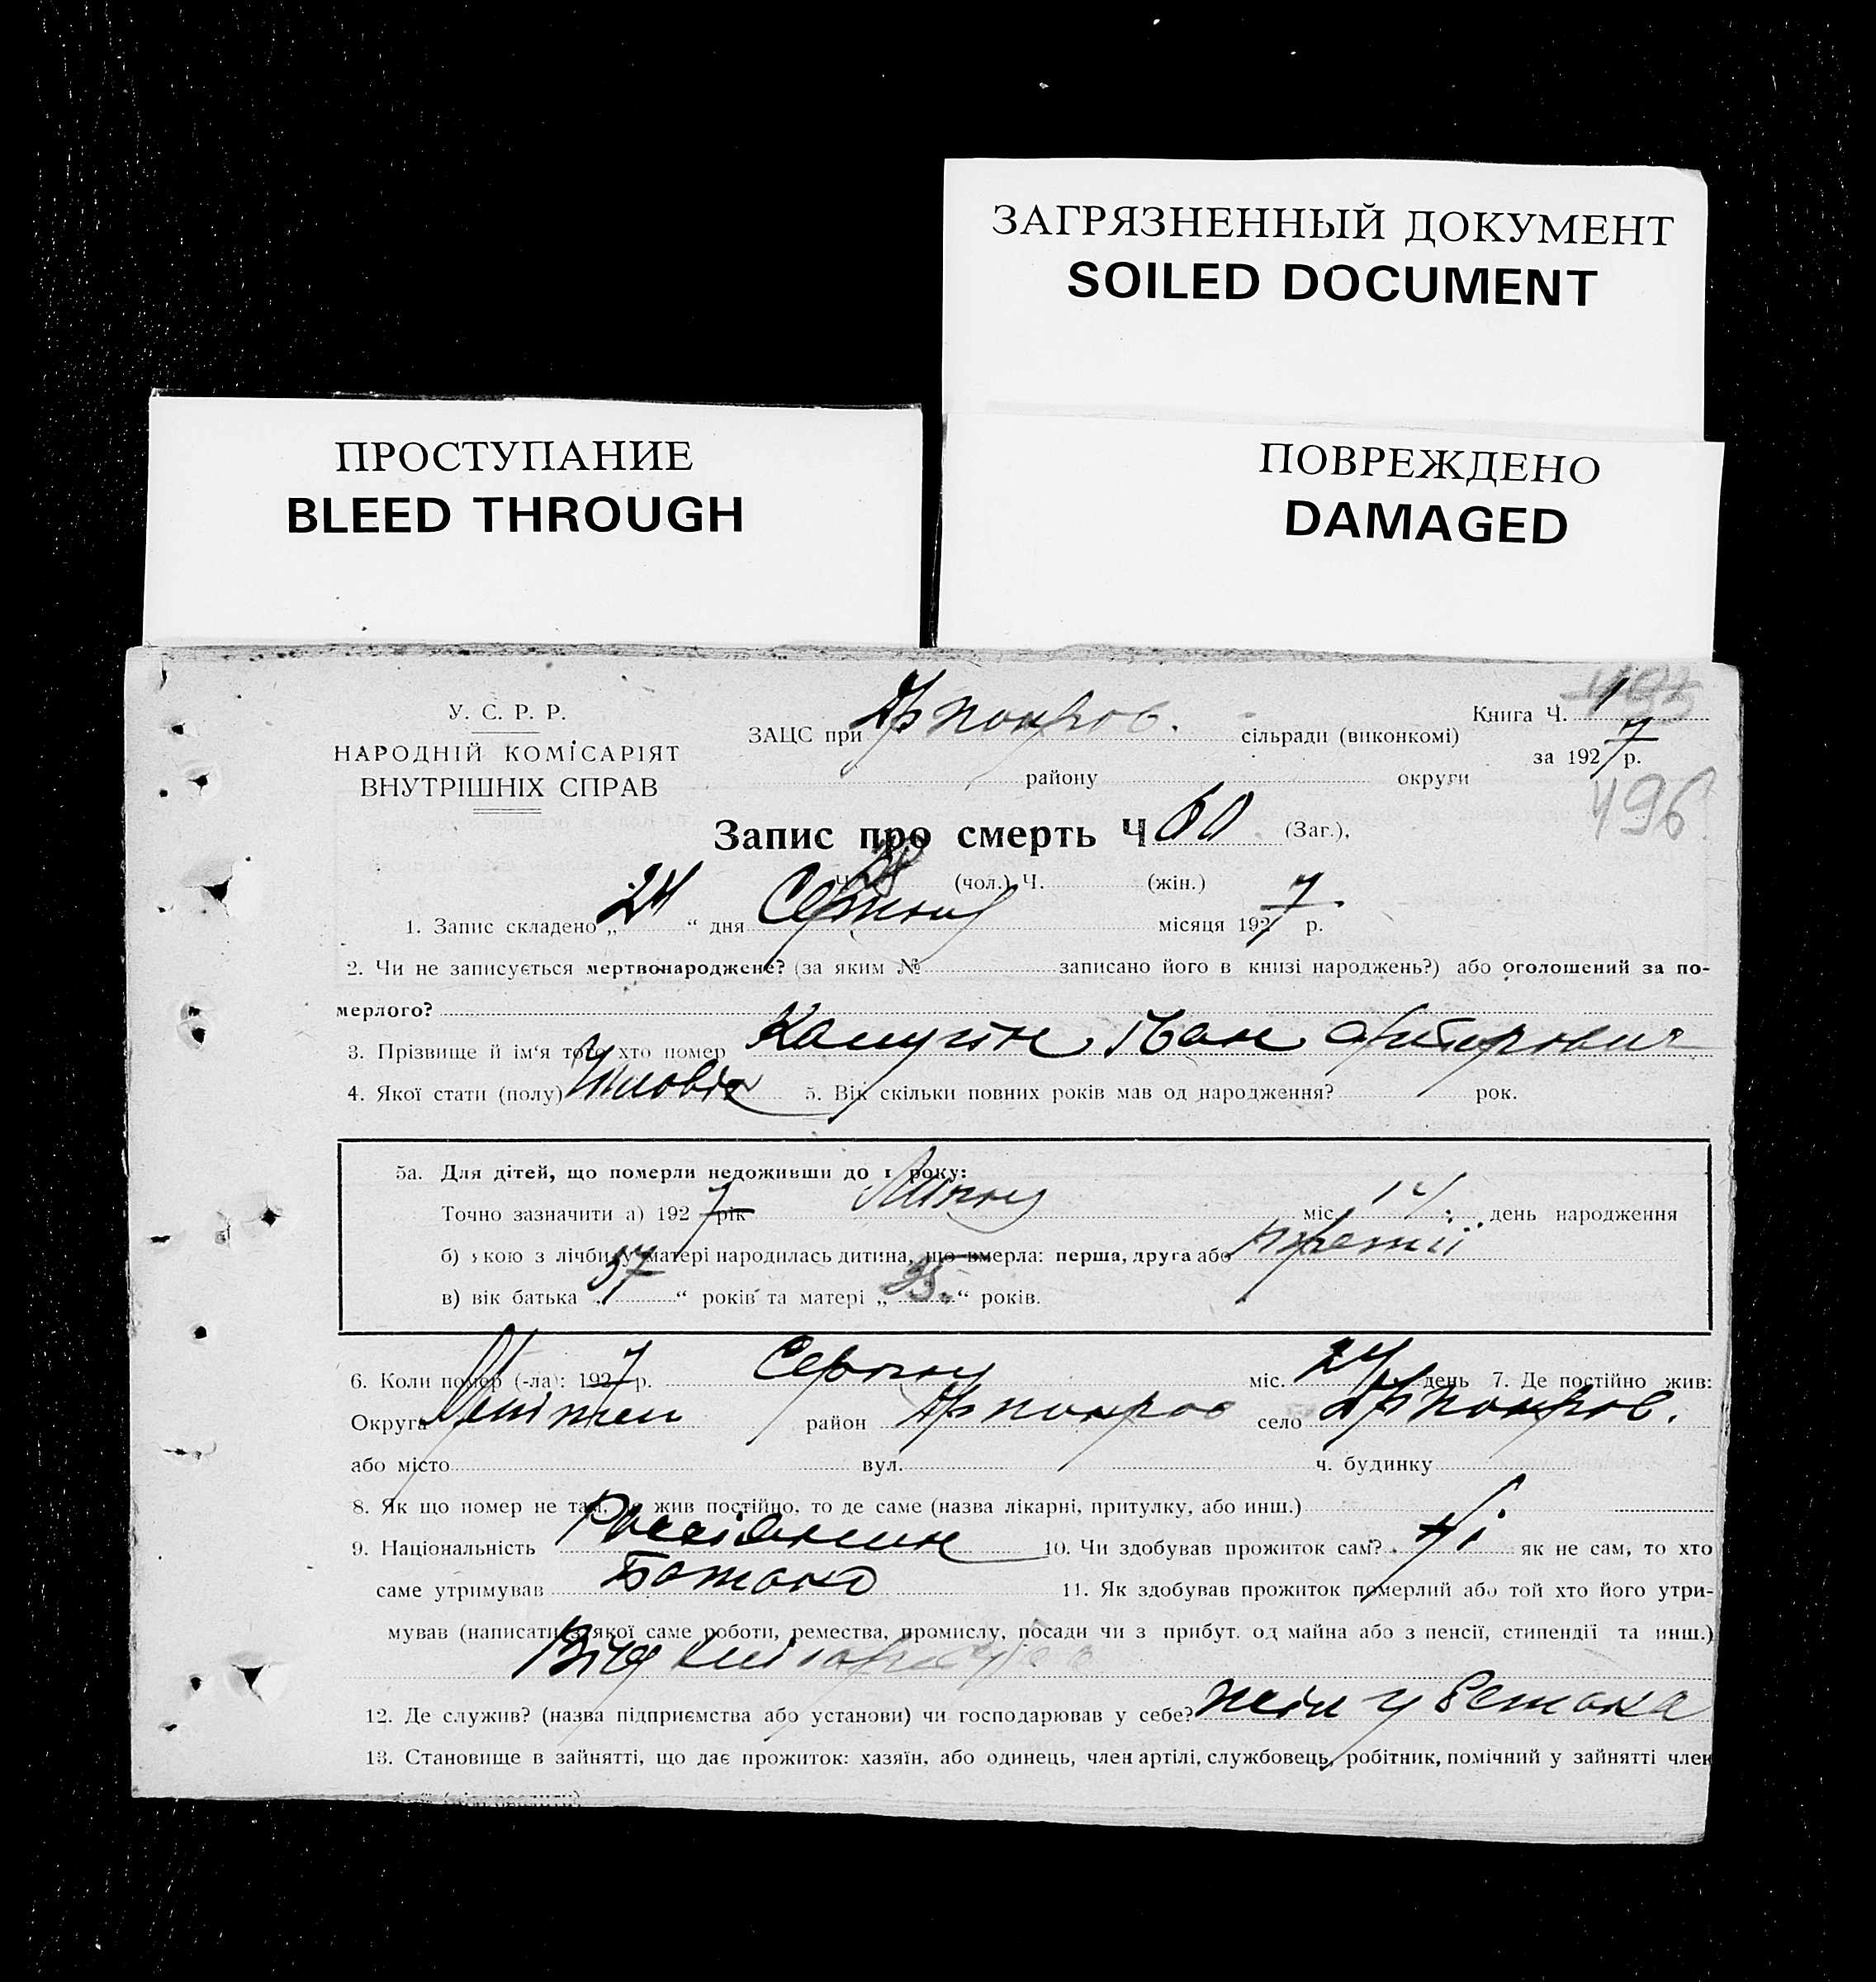 ЗАГРЯЗНЕННЫЙ ДОКУМЕНТ
SOILED DOCUMENT
ПРОСТУПАНИЕ
BLEED THROUGH
ПОВРЕЖДЕНО
DAMAGED
У. С. Р. Р.
НАРОДНІЙ КОМІСАРІЯТ
ВНУТРІШНІХ СПРАВ
ЗАЦС при сільради (виконкомі)
району округи
Книга Ч. 1
за 1927 р.
496
Запис про смерть Ч 60 (Заг.),
Ч. (чол.) Ч. (жін.)
1. Запис складено „24“ дня Серпня місяця 1927 р.
2. Чи не записується мертвонароджене? (за яким № записано його в книзі народжень?) або оголошений за по-
мерлого?
3. Прізвище й ім‘я того хто помер
4. Якої стати (полу) Чиловік 5. Вік скільки повних років мав од народження? рок.
5а. Для дітей, що померли недоживши до 1 року:
Точно зазначити а) 1927 рік Липню міс. 14 день народження
б) якою з лічби у матері народилась дитина, що вмерла: перша, друга або
в) вік батька „37“ років та матері „35.“ років.
6. Коли помер (-ла): 1927 р. Серпню міс. 24 день 7. Де постійно жив:
Округа район село
або місто вул. ч. будинку
8. Як що помер не там, жив постійно, то де саме (назва лікарні, притулку, або инш.)
9. Національність 10. Чи здобував прожиток сам? Ні як не сам, то хто
саме утримував Батько 11. Як здобував прожиток померлий або той хто його утри-
мував (написати з якої саме роботи, ремества, промислу, посади чи з прибут. од майна або з пенсії, стипендії та инш.)
Від
12. Де служив? (назва підприємства або установи) чи господарював у себе? у
13. Становище в зайнятті, що дає прожиток: хазяїн, або одинець, член артілі, службовець, робітник, помічний у зайнятті член